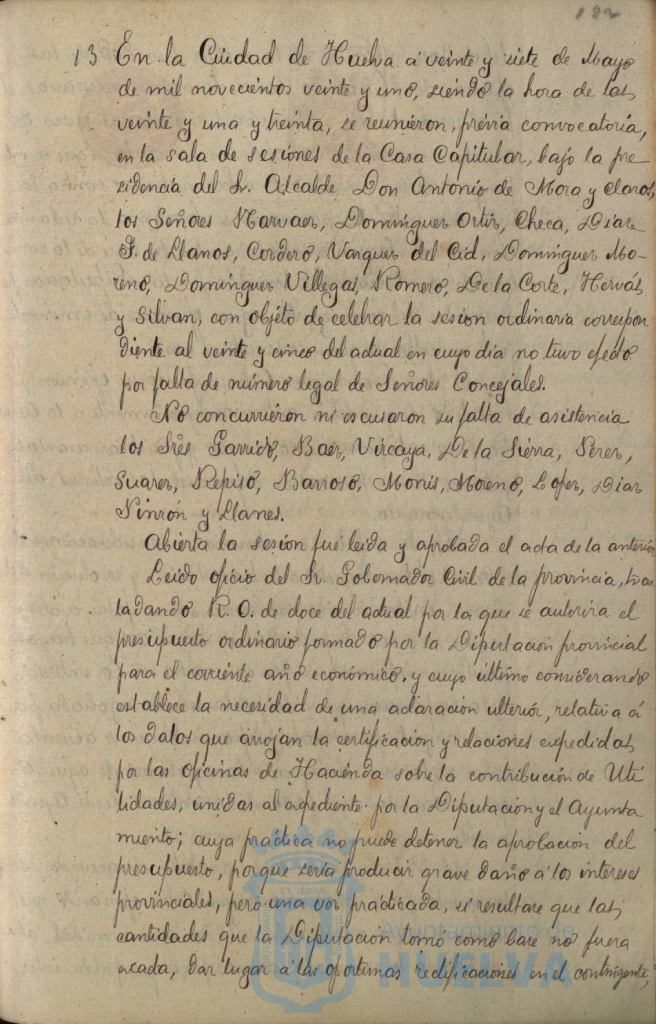 132
13 En la Ciudad de Huelva á veinte y siete de Mayo
de mil novecientos veinte y uno, siendo la hora de las
veinte y una y treinta, se reunieron, prévia convocatoria,
en la sala de sesiones de la Casa Capitular, bajo la pre
sidencia del Sr. Alcalde Don Antonio de Mora y Claros,
los Señores Narvaez, Dominguez Ortiz, Checa, Diaz
F. de Llanos, Cordero, Vazquez del Cid, Dominguez Mo-
reno, Dominguez Villegas, Romero, De la Corte, Hervás
y Silvan, con objéto de celebrar la sesion ordinaria correspon
diente al veinte y cinco del actual en cuyo dia no tuvo efecto
por falta de número legal de Señores Concejales.
No concurriéron ni escusaron su falta de asistencia
los Srés Garrido, Baez, Vizcaya, De la Sierra, Perez,
Suarez, Repiso, Barroso, Monis, Moreno, Lopez, Diaz
Pinzón y Llanes.
Abierta la sesion fué leida y aprobada el acta de la anterior
Leido oficio del Sr. Gobernador Civil de la provincia, tras
ladando R. O. de doce del actual por la que se autoriza el
presupuesto ordinario formado por la Diputacion provincial
para el corriente año económico, y cuyo último considerando
establece la necesidad de una aclaracion ulteriór, relativa á
los datos que arrojan la certificacion y relaciones expedidas
por las oficinas de Hacienda sobre la contribucion de Uti
lidades, unidas al expediente por la Diputacion y el Ayunta
miento; cuya práctica no puede detener la aprobacion del
presupuesto, porque seria producir grave daño á los intereses
provinciales, pero una vez practicada, si resultare que las
cantidades que la Diputacion tomó como base no fuera
exacta, dar lugar á las oportunas rectificaciones en el contingente,
Ayuntamiento de
HUELVA